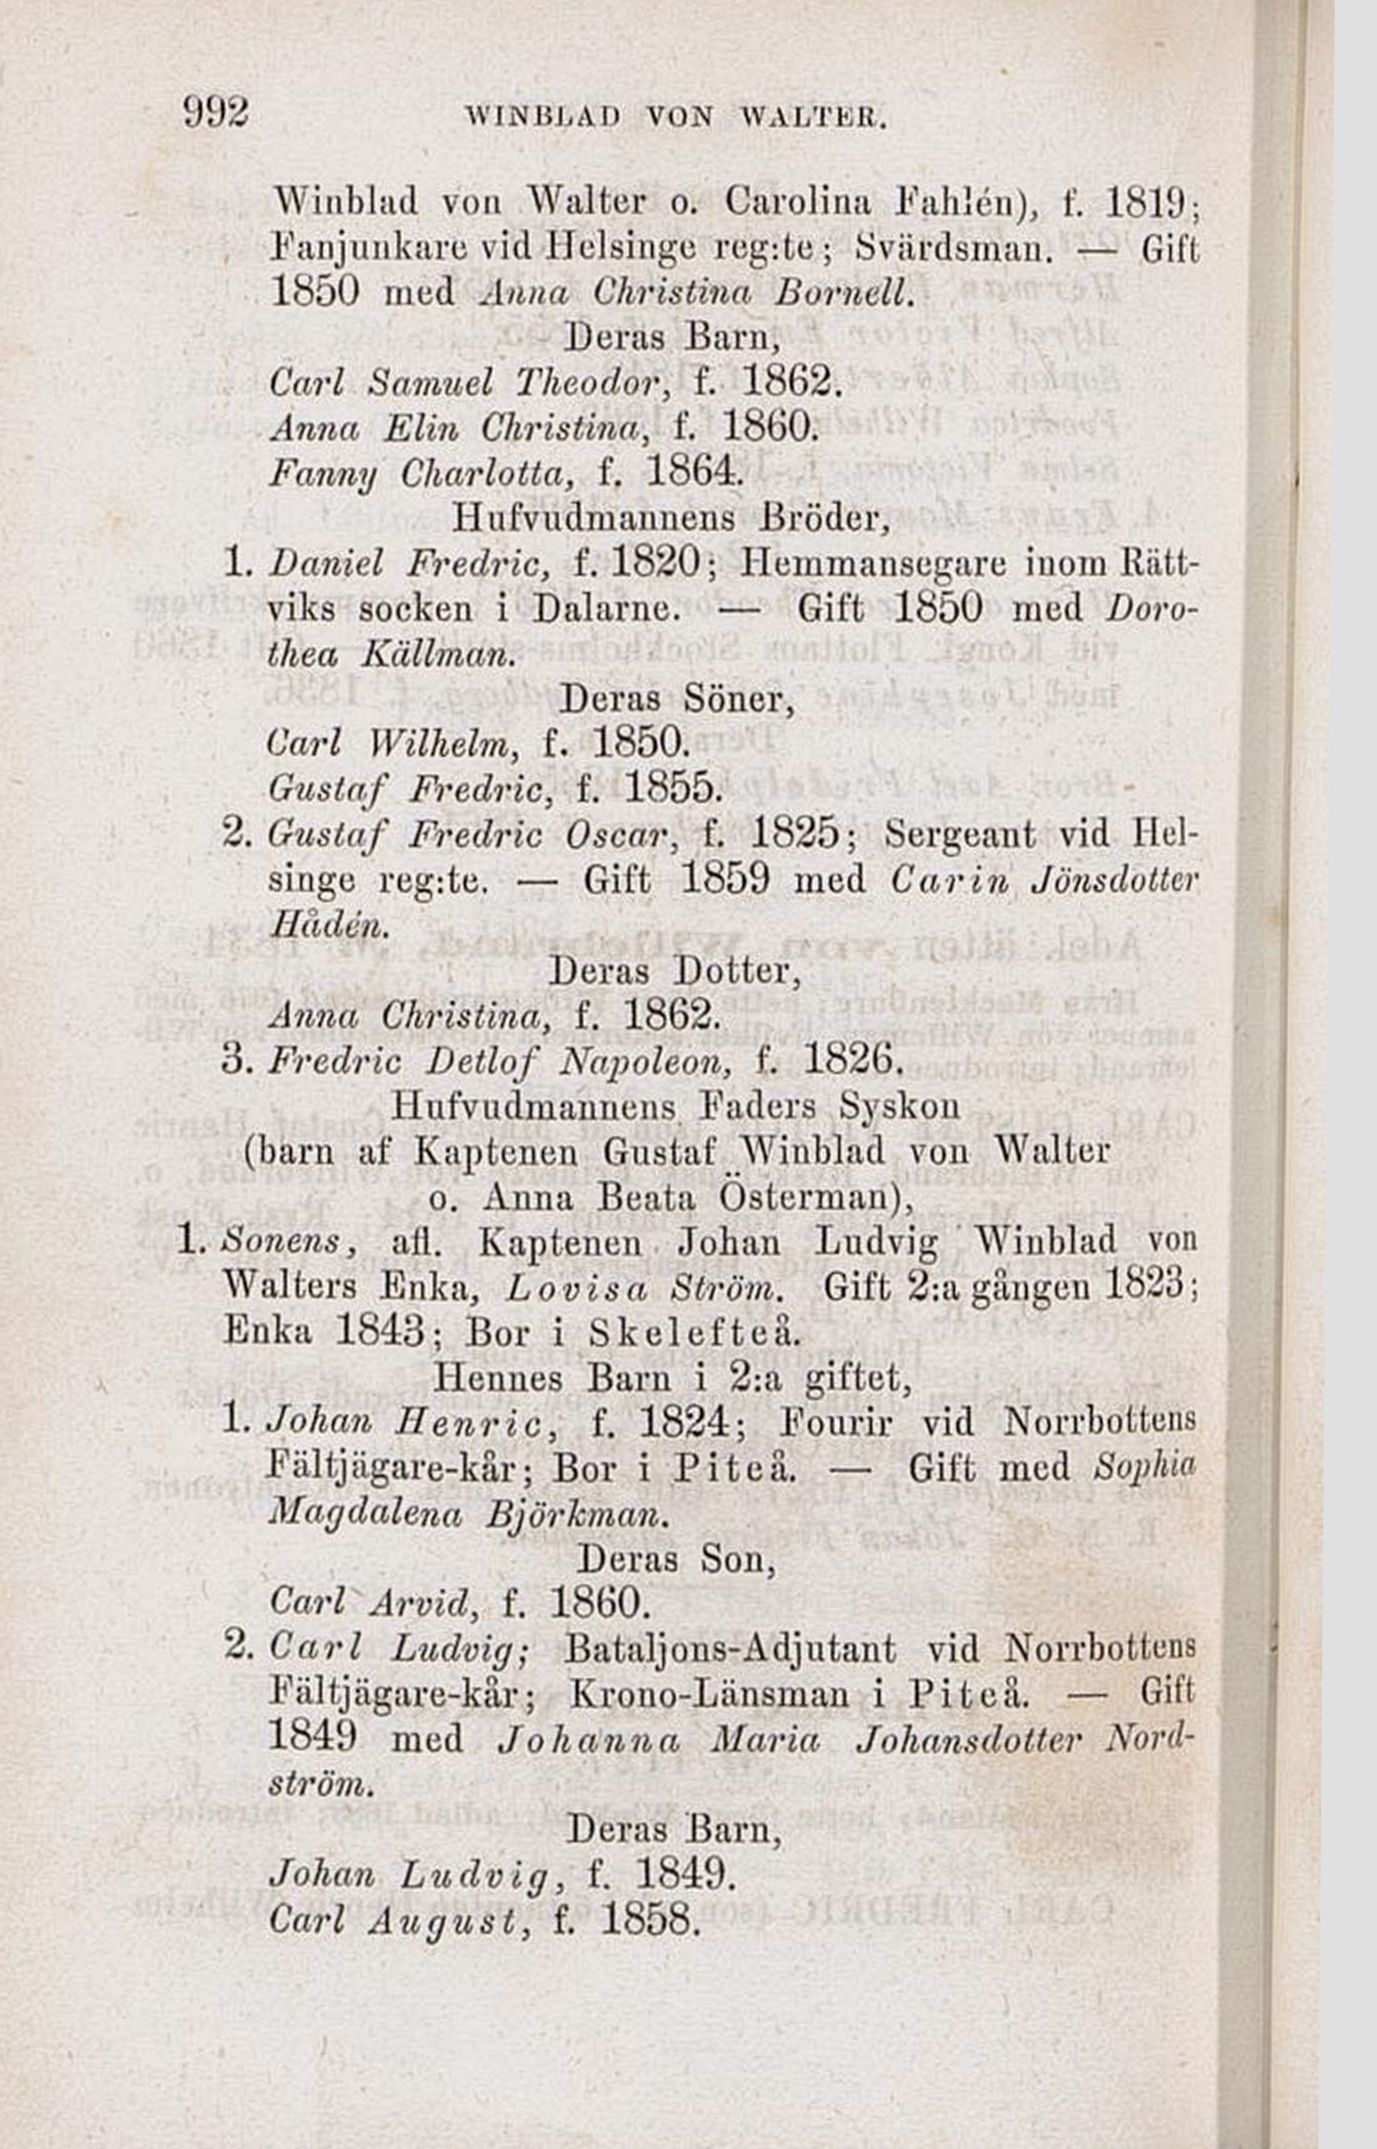 992 WINBLAD VON WALTER.
Winblad von Walter o. Carolina Fahlén), f. 1819;
Fanjunkare vid Helsinge reg:te; Svärdsman. — Gift
1850 med Anna Christina Bornell.
Deras Barn,
Carl Samuel Theodor, f. 1862.
Anna Elin Christina, f. 1860.
Fanny Charlotta, f. 1864.
Hufvudmannens Bröder,
1. Daniel Fredric, f. 1820; Hemmansegare inom Rätt-
viks socken i Dalarne. — Gift 1850 med Doro-
thea Källman.
Deras Söner,
Carl Wilhelm, f. 1850.
Gustaf Fredric, f. 1855.
2. Gustaf Fredric Oscar, f. 1825; Sergeant vid Hel-
singe reg:te. — Gift 1859 med Carin Jönsdotter
Hådén.
Deras Dotter,
Anna Christina, f. 1862.
3. Fredric Detlof Napoleon, f. 1826.
Hufvudmannens Faders Syskon
(barn af Kaptenen Gustaf Winblad von Walter
o. Anna Beata Österman),
1. Sonens, afl. Kaptenen Johan Ludvig Winblad von
Walters Enka, Lovisa Ström. Gift 2:a gången 1823;
Enka 1843; Bor i Skelefteå.
Hennes Barn i 2:a giftet,
1. Johan Henric, f. 1824; Fourir vid Norrbottens
Fältjägare-kår; Bor i Piteå. — Gift med Sophia
Magdalena Björkman.
Deras Son,
Carl Arvid, f. 1860.
2. Carl Ludvig; Bataljons-Adjutant vid Norrbottens
Fältjägare-kår; Krono-Länsman i Piteå. — Gift
1849 med Johanna Maria Johansdotter Nord-
ström.
Deras Barn,
Johan Ludvig, f. 1849.
Carl August, f. 1858.